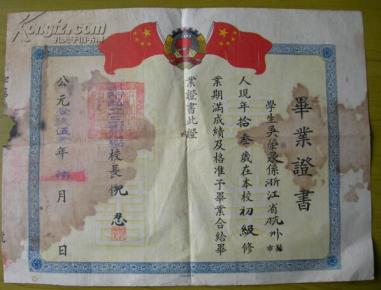 畢業證書
學生吳榮泉係浙江省杭州縣市
人現年拾叁歲在本校初級修
業期滿成績及格准予畢業合給畢
業證書此證
校長倪忍
公元壹玖伍年月日
Kongfz.com
孔夫子旧书网